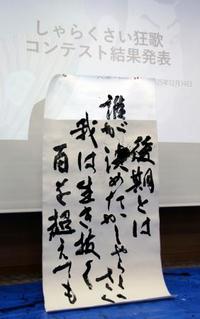 しゃらくさい狂歌
コンテスト結果発表
12月14日
後期とは
誰が決めたかしゃらくさく
我は生き抜く
百を超えても